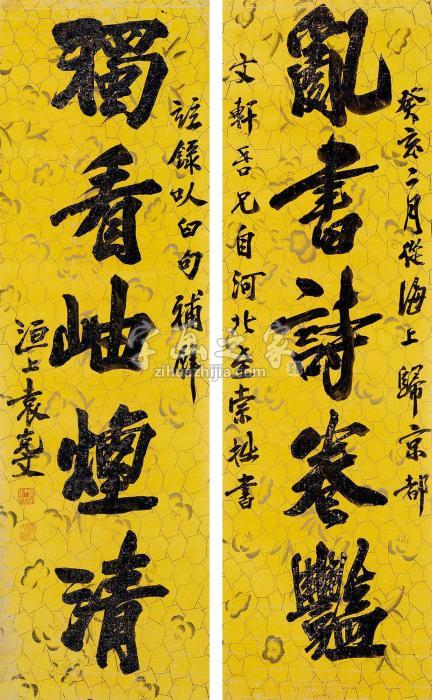 癸亥二月從海上歸京都
亂書詩卷豔
文軒吾兄自河北至索拙書
錄以句補
獨看岫煙清
洹上袁克文
字画之家
www.zihuazhijia.com